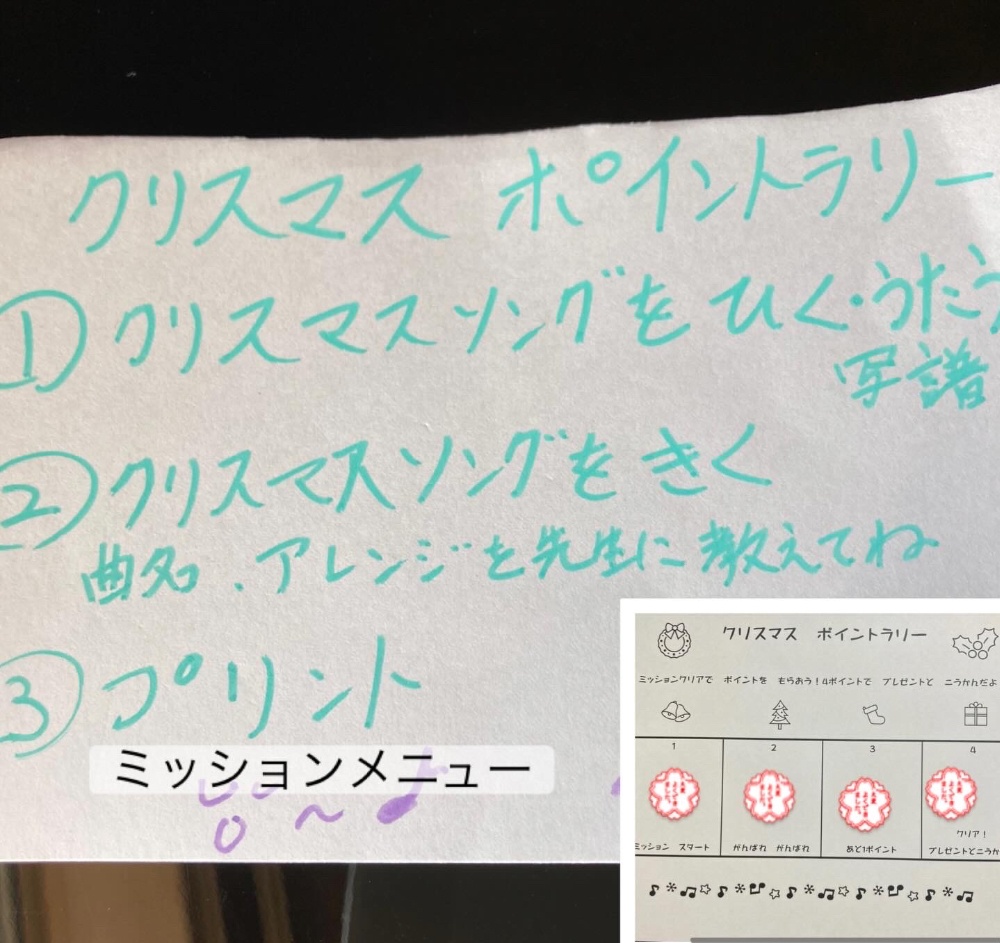 クリスマス ポイントラリー
① クリスマスソングをひく・うたう
写譜
② クリスマスソングをきく
曲名、アレンジを先生に教えてね
③ プリント
ミッションメニュー
クリスマス ポイントラリー
ミッションクリアで ポイントを もらおう！4ポイントで プレゼントと こうかんだよ
1 2 3 4
ミッション スタート がんばれ がんばれ あと1ポイント クリア！
プレゼントとこうか